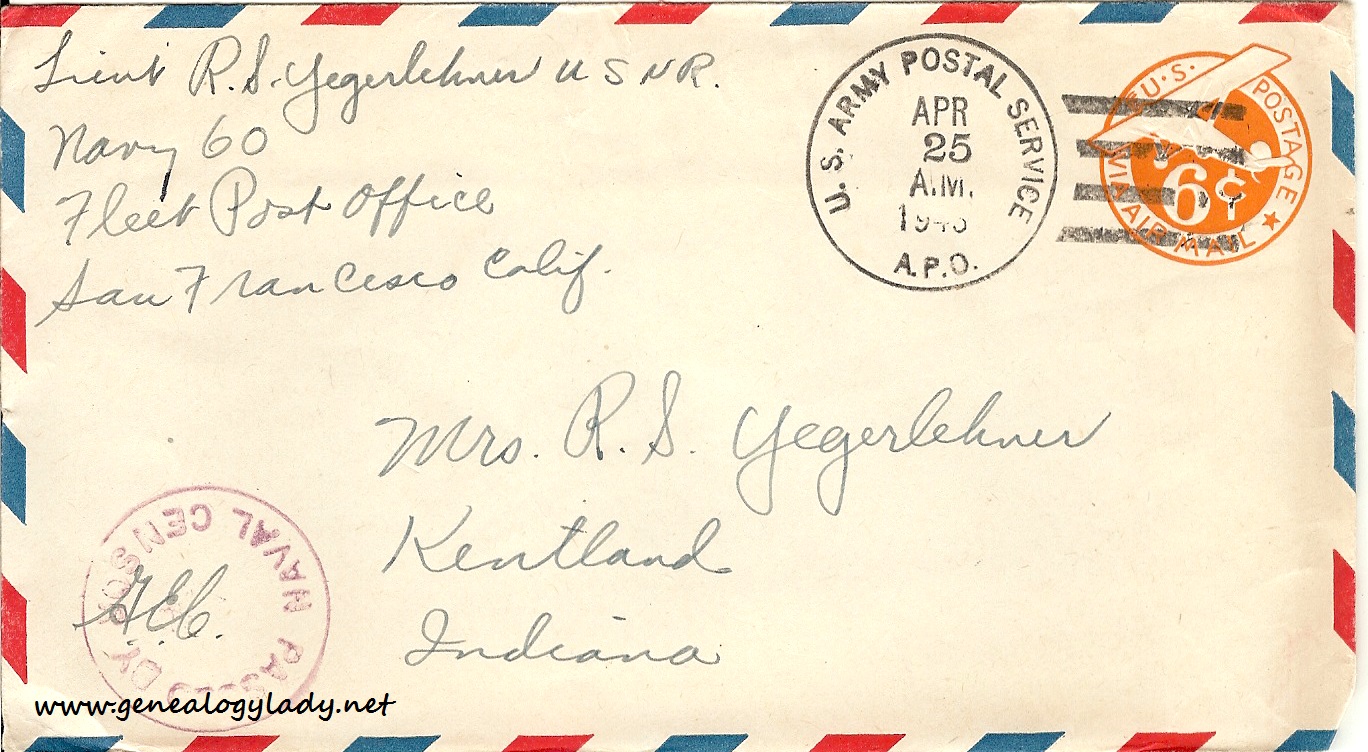 Lieut R. S. Yegerlehner U S N R.
Navy 60
Fleet Post Office
San Francisco Calif.
U. S. ARMY POSTAL SERVICE
APR
25
A.M.
A.P.O.
U.S. POSTAGE
6¢
VIA AIR MAIL
Mrs. R. S. Yegerlehner
Kentland
Indiana
PASSED BY NAVAL CENSOR
www.genealogylady.net